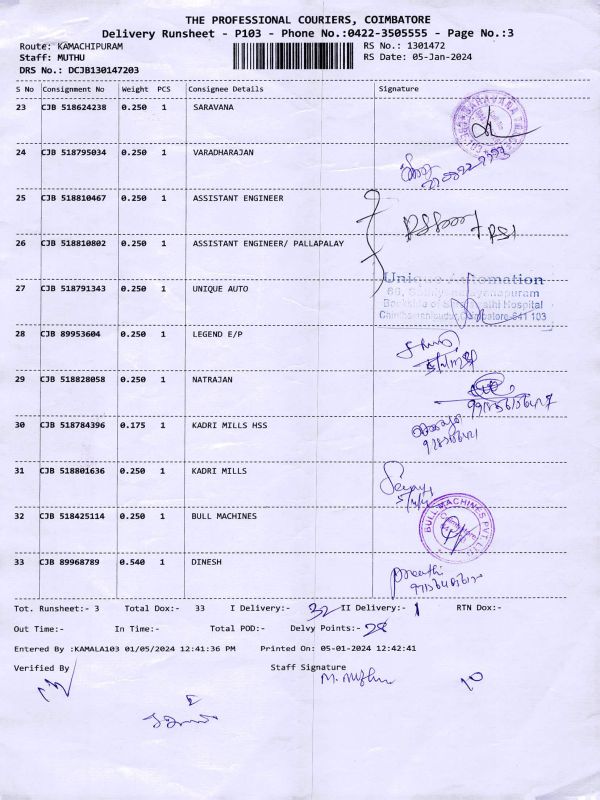 THE PROFESSIONAL COURIERS, COIMBATORE
Delivery Runsheet - P103 - Phone No.:0422-3505555 - Page No.:3
Route: KAMACHIPURAM RS No.: 1301472
Staff: MUTHU RS Date: 05-Jan-2024
DRS No.: DCJB130147203
S No Consignment No Weight PCS Consignee Details Signature
23 CJB 518624238 0.250 1 SARAVANA
24 CJB 518795034 0.250 1 VARADHARAJAN
25 CJB 518810467 0.250 1 ASSISTANT ENGINEER
26 CJB 518810802 0.250 1 ASSISTANT ENGINEER/ PALLAPALAY
27 CJB 518791343 0.250 1 UNIQUE AUTO
Unique Automation
28 CJB 89953604 0.250 1 LEGEND E/P
29 CJB 518828058 0.250 1 NATRAJAN
30 CJB 518784396 0.175 1 KADRI MILLS HSS
31 CJB 518801636 0.250 1 KADRI MILLS
32 CJB 518425114 0.250 1 BULL MACHINES
BULL MACHINES PVT. LTD.
33 CJB 89968789 0.540 1 DINESH
Preethi
Tot. Runsheet:- 3 Total Dox:- 33 I Delivery:- 32 II Delivery:- 1 RTN Dox:-
Out Time:- In Time:- Total POD:- Delvy Points:- 28
Entered By :KAMALA103 01/05/2024 12:41:36 PM Printed On: 05-01-2024 12:42:41
Verified By Staff Signature
M. Muthu